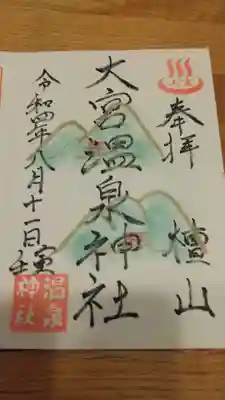 奉拝
檀山
大宮温泉神社
令和四年八月十一日
壬寅
温泉
神社